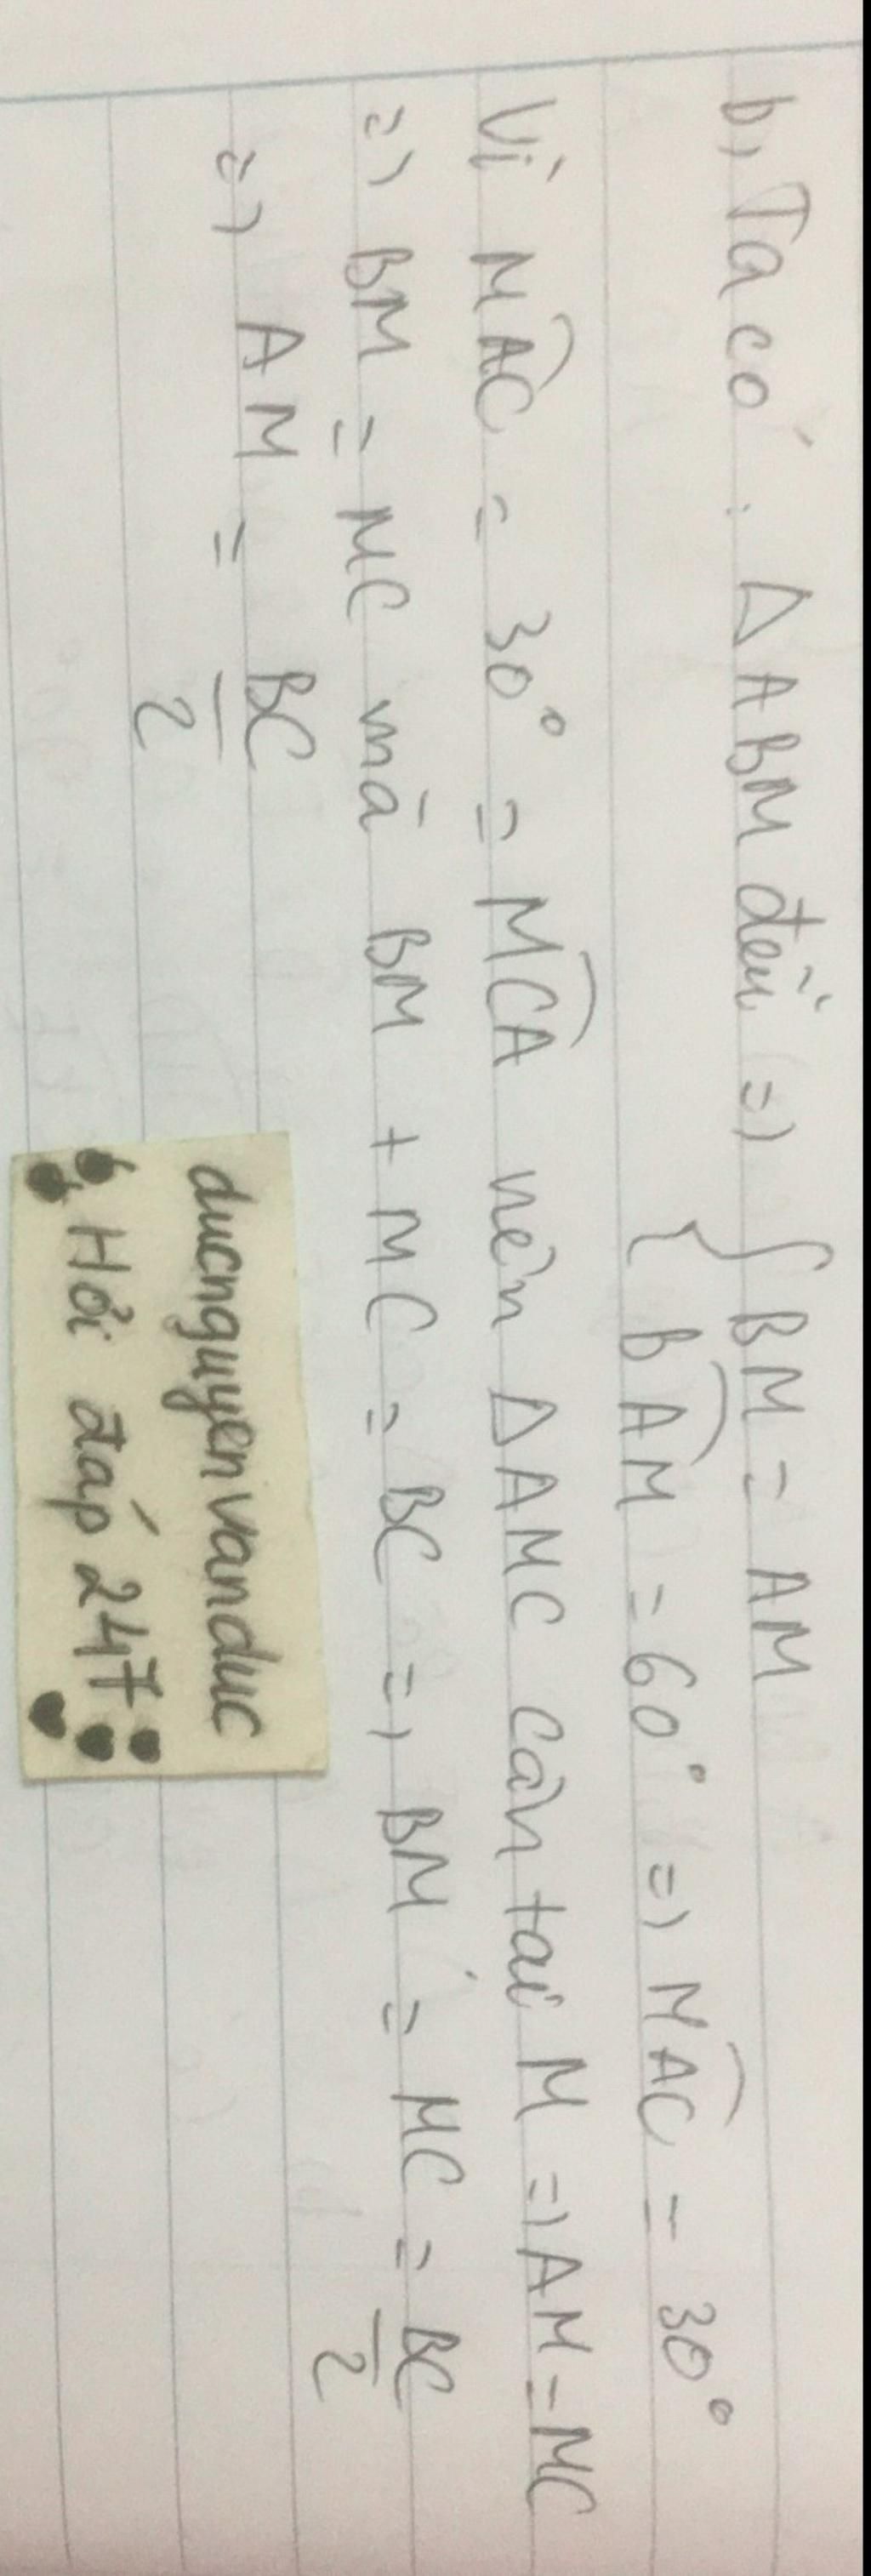 b, Ta có: ΔABM đều => { BM = AM
{ BAM = 60° => MAC = 30°
Vì MAC = 30° = MCA nên ΔAMC cân tại M => AM = MC
=> BM = MC mà BM + MC = BC => BM = MC = BC/2
=> AM = BC/2
ducnguyenvanduc
Hỏi đáp 247